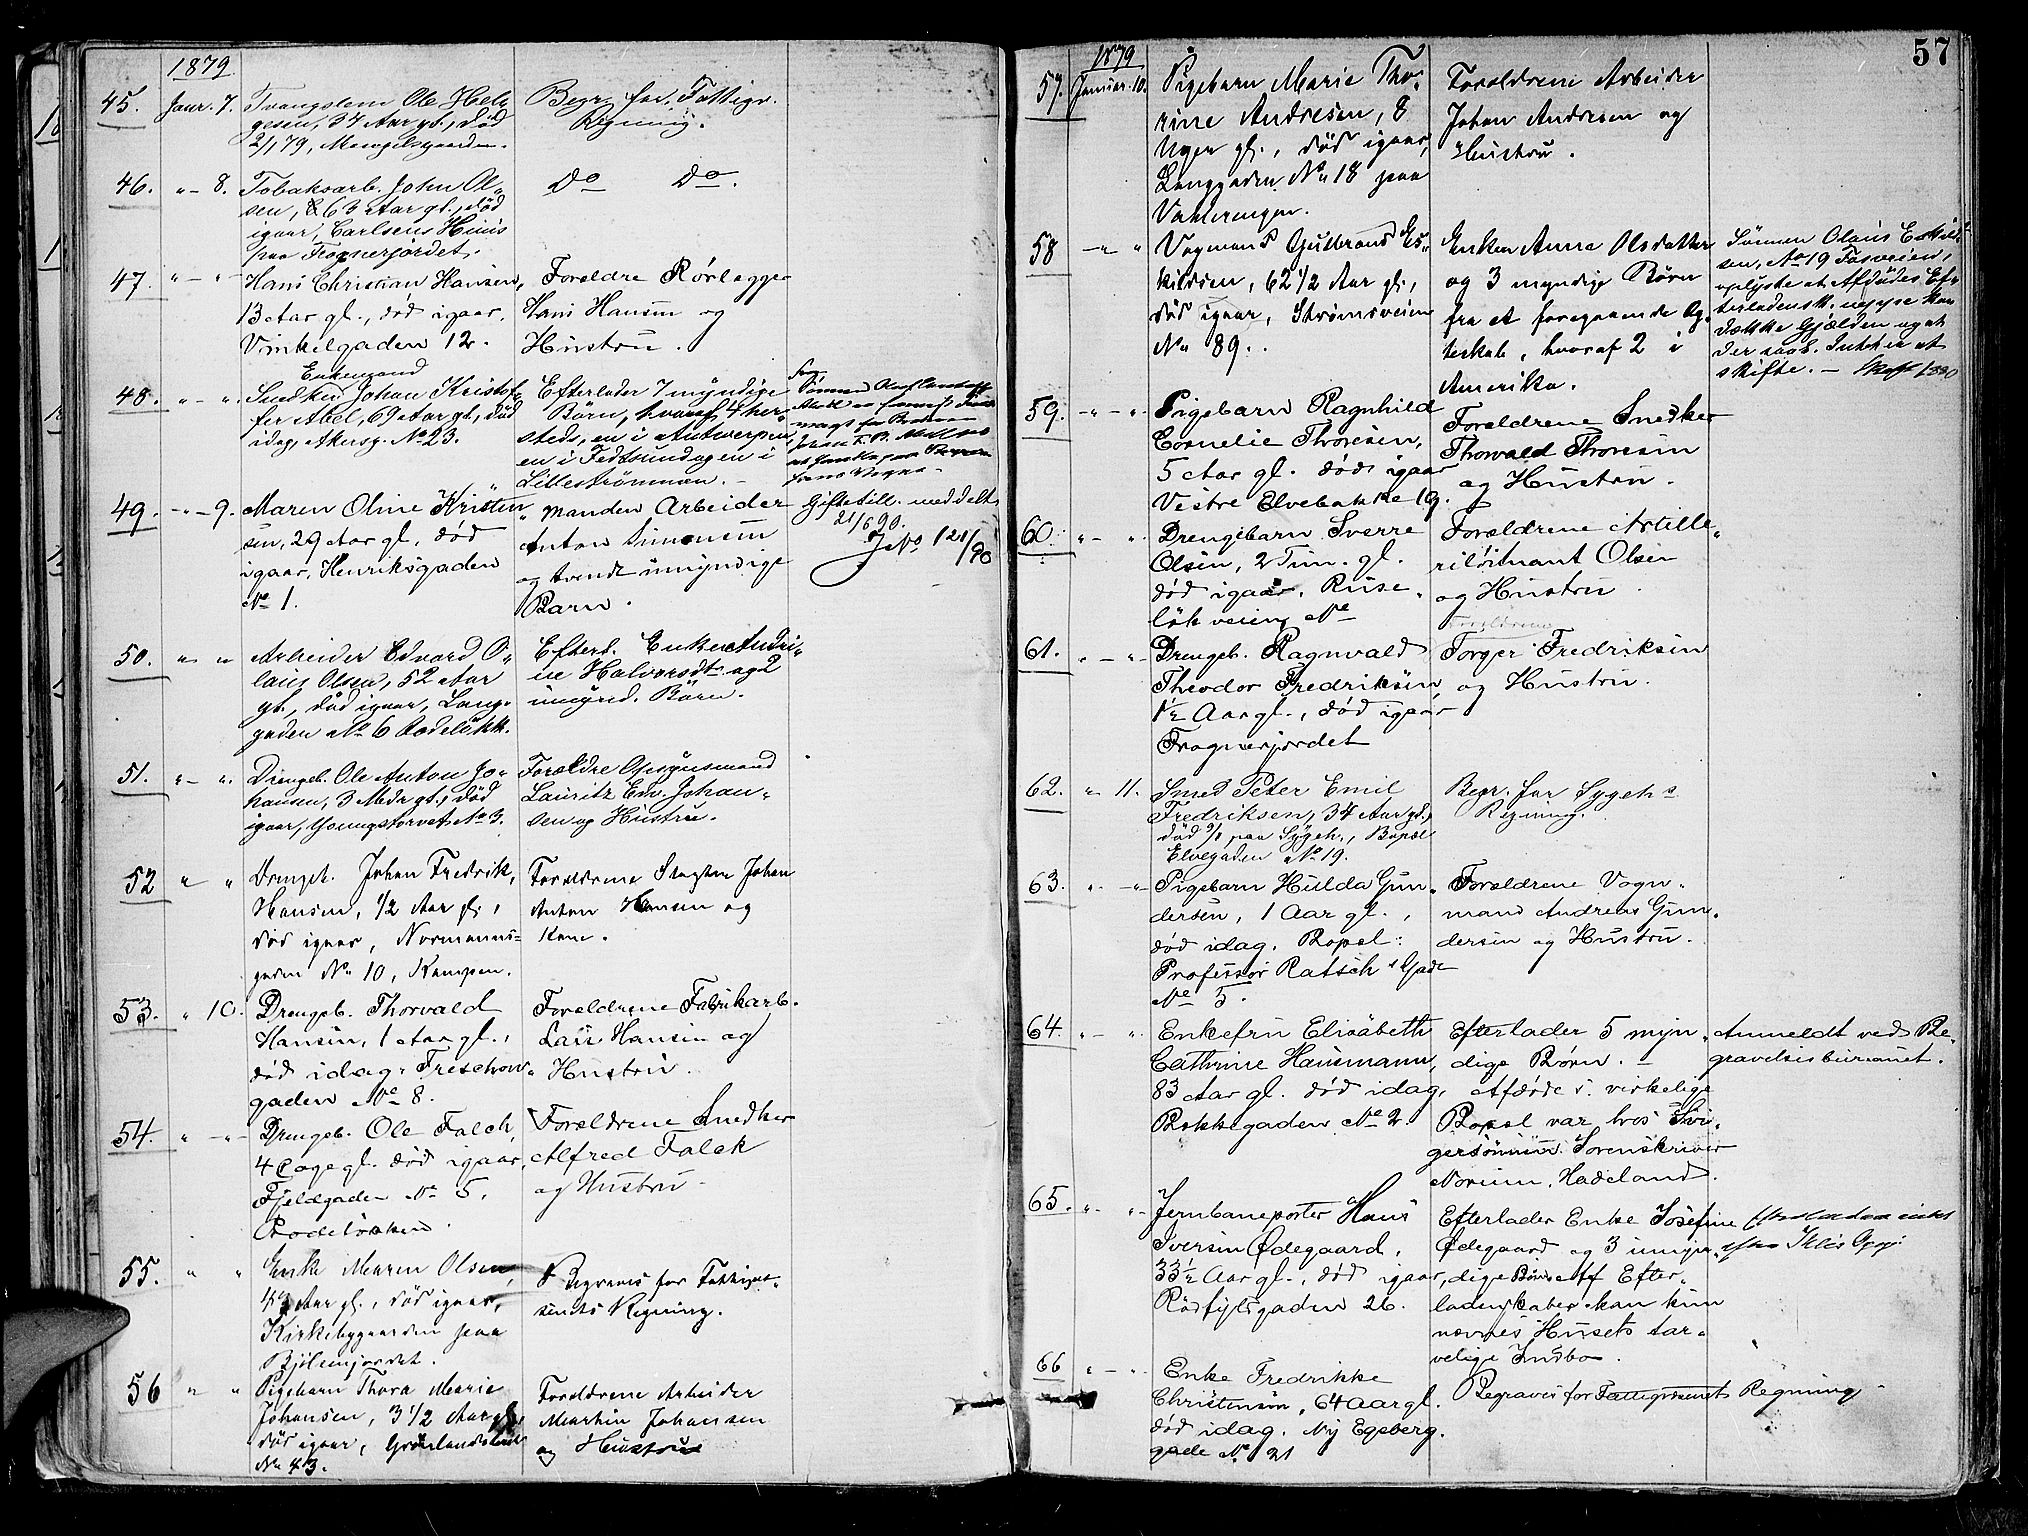 1879
45. Janr. 7. Tvangslem Ole Hel-
gesen, 34 Aar gl., død
2/1 79, Mangelsgaarden.
Begr. for Fattigv.
Regning.
46. " - 8. Tobaksarb. Johan Ol-
sen, 63 Aar gl., død
igaar, Carlsens Huus
paa Frognerjordet.
Do Do.
47. " - " Hans Christian Hansen,
13 Aar gl., død igaar.
Vinkelgaden 12.
Forældre Rørlægger
Hans Hansen og
Hustru.
48. " - " Enkemand
Snedker Johan Kristof-
fer Abel, 69 Aar gl., død
idag, Akersg. No 23.
Efterlader 7 myndige
Børn, hvoraf 4 her-
steds, en i Antwerpen,
en i Fedtsund og en i
Lillestrømmen. -
Sønnen
49. " - 9. Maren Oline Kristen-
sen, 29 Aar gl., død
igaar, Henriksgaden
No 1.
Manden Arbeider
Anton Simensen
og tvende umyndige
Barn.
Giftetill. meddelt
21/6 90.
JNo 121/90
50. " " Arbeider Edvard O-
laus Olsen, 52 Aar
gl., død igaar, Lang-
gaden No 6 Rodeløkk.
Efterl. Enken Andri-
ne Halvorsdtr og 2
umynd. Børn.
51. " - " Drengeb. Ole Anton Jo-
hansen, 3 Mdr gl., død
igaar, Youngstorvet No 3.
Forældre Opsynsmand
Lauritz Edv. Johan-
sen og Hustru.
52 " " Drengeb. Johan Fredrik
Hansen, 1/2 Aar gl.,
død igaar, Normanns-
gaden No 10, Kampen.
Forældrene Slagter Johan
Anton Hansen og
Kone.
53. " 10. Drengeb. Thorvald
Hansen, 1 Aar gl.,
død idag. Freschow-
gaden No 8.
Forældrene Fabrikarb.
Lars Hansen og
Hustru.
54. " - " Drengeb. Ole Falck,
4 Dage gl. død igaar,
Fjeldgaden No 5.
Rodeløkken.
Forældrene Snedker
Alfred Falck
og Hustru.
55. " " Enke Maren Olsen,
Aar gl., død igaar,
Kirkebygaarden paa
Bjølsenjordet.
Begraves for Fattigvæ-
senets Regning.
56 " " Pigebarn Thora Marie
Johansen, 3 1/2 Aar gl.,
død igaar, Grønlandsleret
No 43.
Forældrene Arbeider
Martin Johansen
og Hustru
57
1879
57. Januar. 10. Pigebarn Marie Tho-
rine Andresen, 8
Uger gl., død igaar,
Langgaden No 18 paa
Vaalerengen.
Forældrene Arbeider
Johan Andresen og
Hustru.
58 - " " Vognmand Gulbrand Es-
kildsen, 62 1/2 Aar gl.,
død igaar, Strømsveien
No 89.
Enken Anne Olsdatter
og 3 myndige Børn
fra et foregaaende Æg-
teskab, hvoraf 2 i
Amerika.
Sønnen Olaus Eskild-
sen, No 19 Tøsveien,
oplyste at Afdødes Ef-
terladensk. neppe kan
dække Gjælden og at
der saal. Intet er at
skifte. -
59. " - " Pigebarn Ragnhild
Cornelie Thoresen,
5 Aar gl. død igaar
Vestre Elvebakke 19.
Forældrene Snedker
Thorvald Thoresen
og Hustru.
60 " - " Drengebarn Sverre
Olsen, 2 Tim. gl.
død igaar, Ruse-
løkveien No
Forældrene Artille-
riløitnant Olsen
og Hustru.
61. " - " Drengeb. Ragnvald
Theodor Fredriksen,
1 1/2 Aar gl., død igaar
Frognerjordet
Forældrene
Torger Fredriksen
og Hustru.
62. " 11. Smed Peter Emil
Fredriksen, 34 Aar gl.,
død 9/1 paa Sygeh., Bopæl
Elvegaden No 19.
Begr. for Sygeh s
Regning.
63. " - " Pigebarn Hulda Gun-
dersen, 1 Aar gl.,
død idag. Bopæl:
Professor Ratsch's Gade
No 5.
Forældrene Vogn-
mand Andreas Gun-
dersen og Hustru.
64. " - " Enkefru Elisabeth
Cathrine Hausmann,
83 Aar gl. død idag,
Bakkegaden No 2
Efterlader 5 myn-
dige Børn. -
Afdødes virkelige
Bopæl var hos Svi-
gersønnen Sorenskriver
Norum, Hadeland.
Anmeldt ved Be-
gravelsesbureauet.
65. " - " Jernbaneporter Hans
Iversen Ødegaard,
33 1/2 Aar gl., død igaar,
Rødfyldgaden 26.
Efterlader Enke Josefine
Ødegaard og 3 umyn-
dige Børn. Af Efter-
ladenskaber kan kun
nævnes Husets tar-
velige Indbo.
66 " - " Enke Fredrikke
Christensen, 64 Aar gl.
død idag. Ny Egeberg-
gade No 21
Begraves for Fattigvæsenets Regning